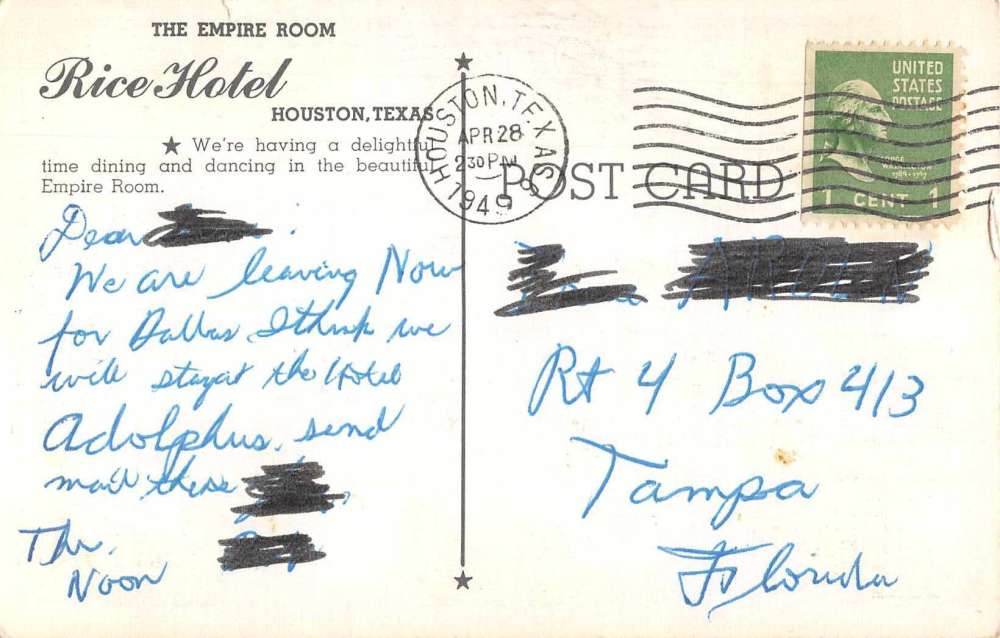 THE EMPIRE ROOM
Rice Hotel
HOUSTON, TEXAS
★ We're having a delightful
time dining and dancing in the beautiful
Empire Room.
Dear
We are leaving Now
for Dallas I think we
will stay at the Hotel
Adolphus. send
mail there
Thr.
Noon
HOUSTON, TEXAS
APR 28
2 30 PM
1949
POST CARD
UNITED
STATES
POSTAGE
1 CENT 1
Rt 4 Box 413
Tampa
Florida